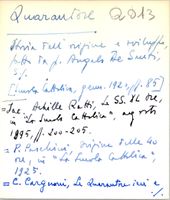 Quarantore 2013
Storia dell'origine e sviluppo,
fatta da p. Angelo De Santi,
s/.
[Scuola Cattolica, genn. 1920, p. 85]
= Sac. Achille Ratti, Le SS. 40 ore,
in "La Scuola Cattolica", agosto
1895, p. 200-205.
= P. Paschini, origine delle 40
ore, in "La Scuola Cattolica",
1925.
= C. Cargnoni, Le Quarantore ieri e